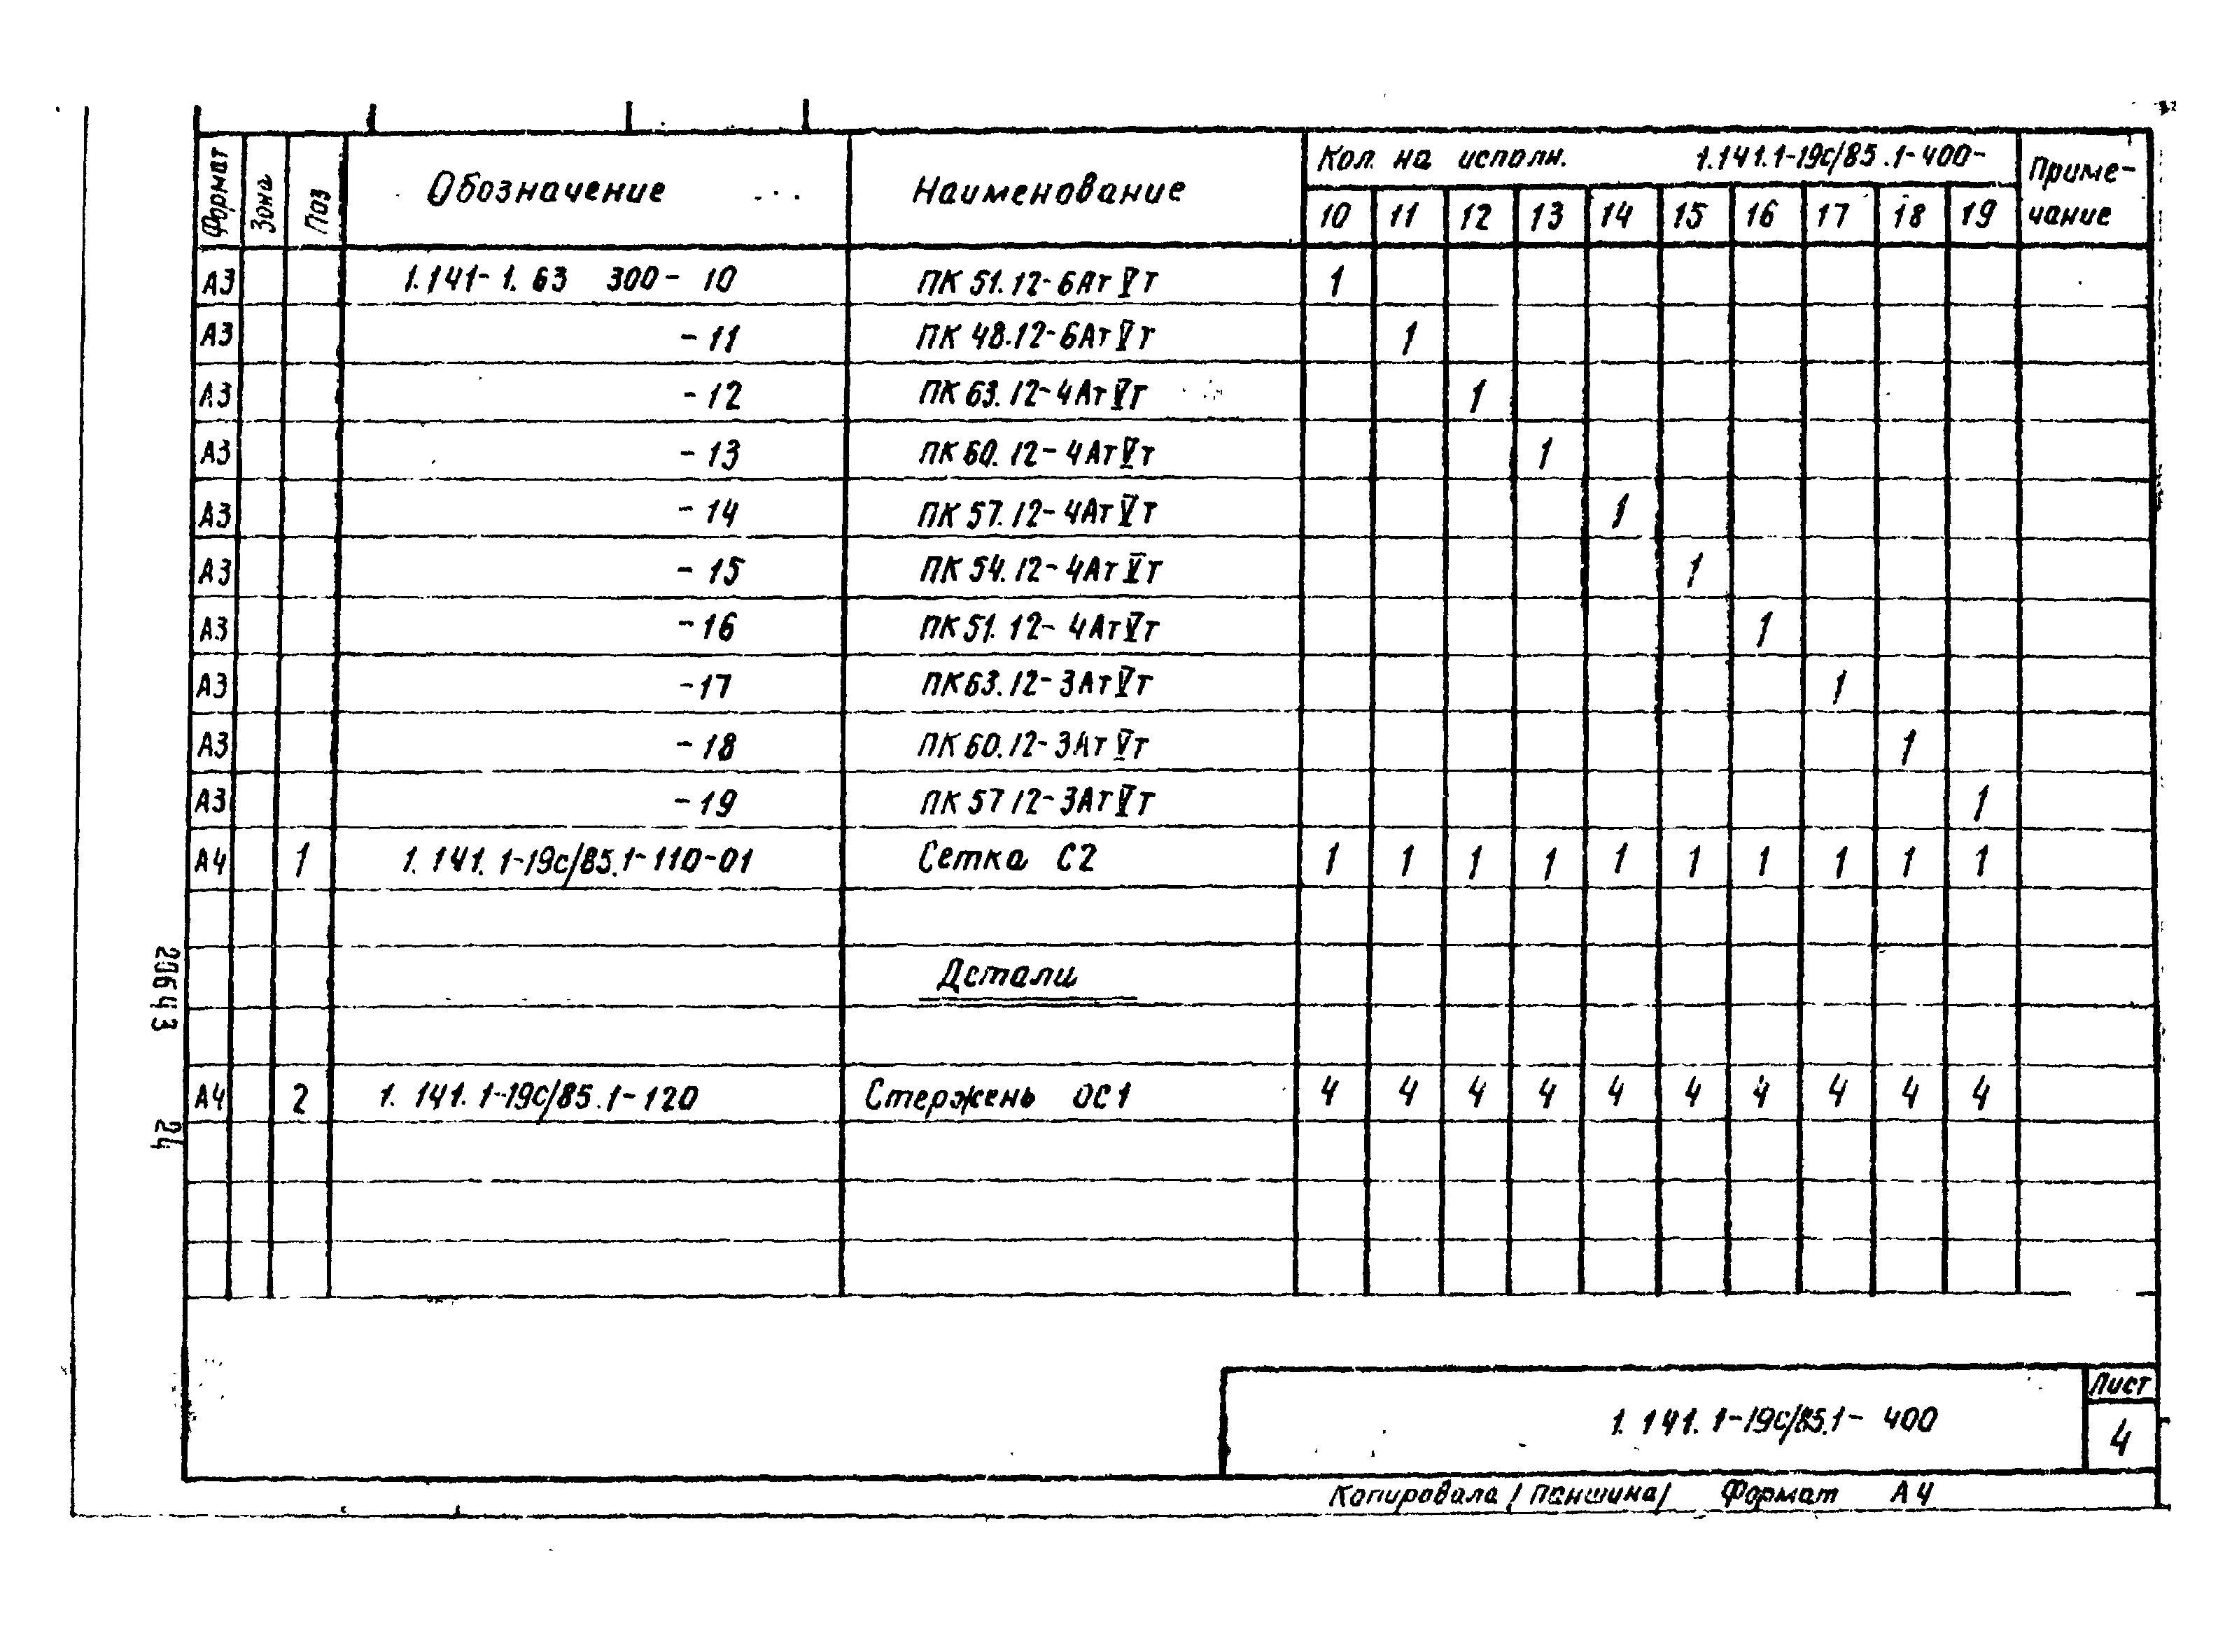 Формат Зона Поз Обозначение Наименование Кол. на исполн. 1.141.1-19с/85.1-400- Приме-
чание
10 11 12 13 14 15 16 17 18 19
А3 1.141-1.63 300-10 ПК 51.12-6АтVт 1
А3 -11 ПК 48.12-6АтVт 1
А3 -12 ПК 63.12-4АтVт 1
А3 -13 ПК 60.12-4АтVт 1
А3 -14 ПК 57.12-4АтVт 1
А3 -15 ПК 54.12-4АтVт 1
А3 -16 ПК 51.12-4АтVт 1
А3 -17 ПК 63.12-3АтVт 1
А3 -18 ПК 60.12-3АтVт 1
А3 -19 ПК 57 12-3АтVт 1
А4 1 1.141.1-19с/85.1-110-01 Сетка С2 1 1 1 1 1 1 1 1 1 1
Детали
А4 2 1.141.1-19с/85.1-120 Стержень ОС1 4 4 4 4 4 4 4 4 4 4
20643 24
1.141.1-19с/85.1-400
Лист
4
Копировала /Паншина/ Формат А4